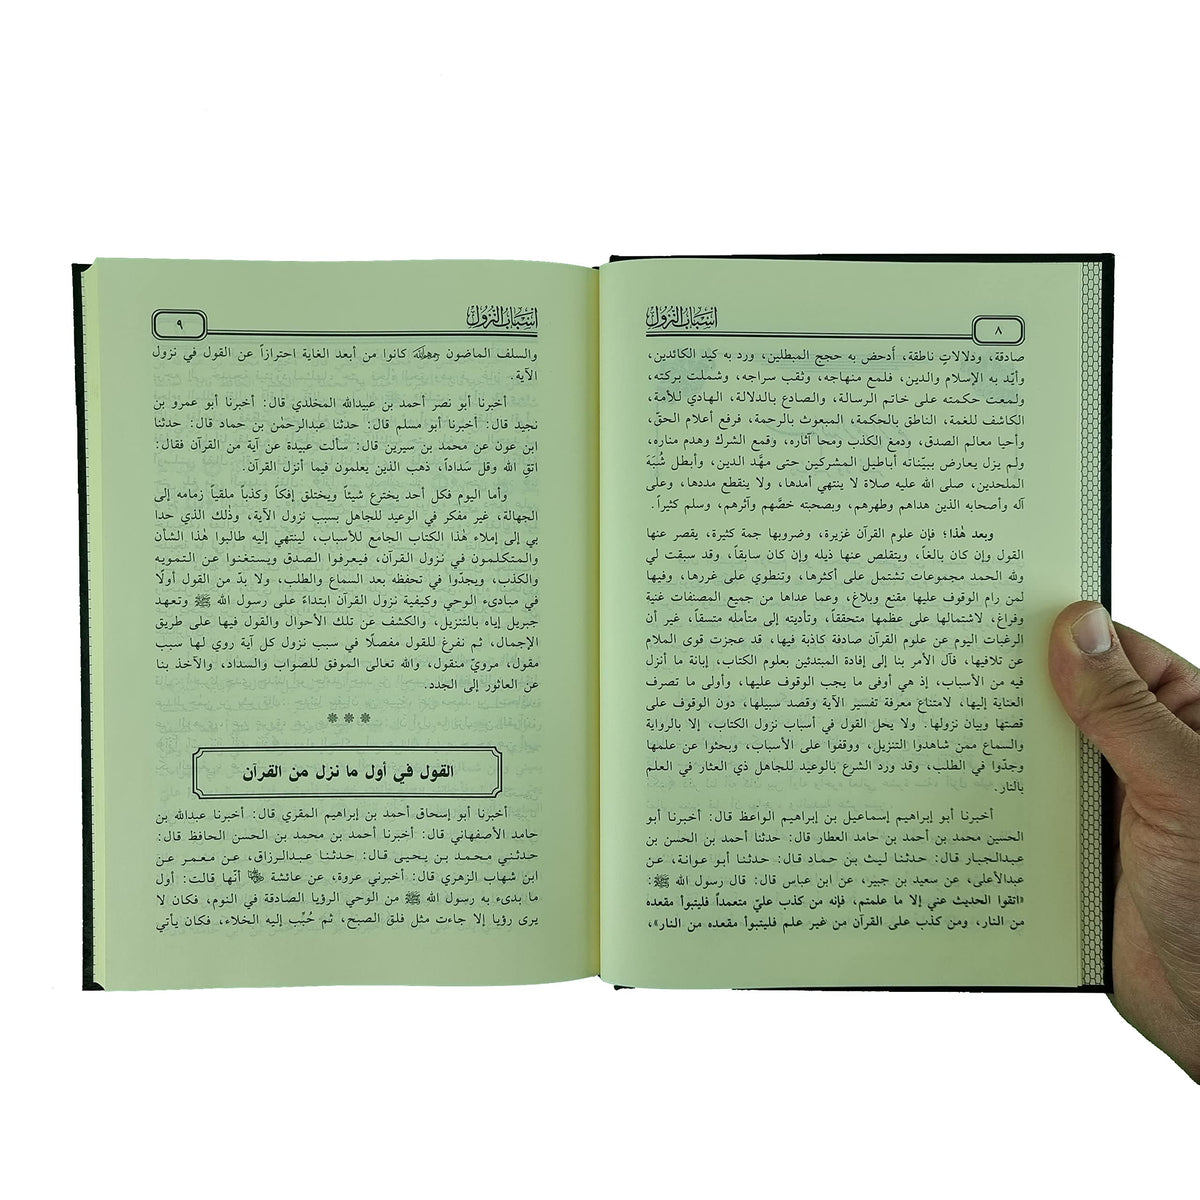 أسباب النزول
٨
صادقة، ودلالاتٍ ناطقة، أدحض به حجج المبطلين، ورد به كيد الكائدين،
وأيّد به الإسلام والدين، فلمع منهاجه، وثقب سراجه، وشملت بركته،
ولمعت حكمته على خاتم الرسالة، والصادع بالدلالة، الهادي للأمة،
الكاشف للغمة، الناطق بالحكمة، المبعوث بالرحمة، فرفع أعلام الحقّ،
وأحيا معالم الصدق، ودمغ الكذب ومحا آثاره، وقمع الشرك وهدم مناره،
ولم يزل يعارض ببيّناته أباطيل المشركين حتى مهَّد الدين، وأبطل شُبَهَ
الملحدين، صلى الله عليه صلاة لا ينتهي أمدها، ولا ينقطع مددها، وعلى
آله وأصحابه الذين هداهم وطهرهم، وبصحبته خصَّهم وآثرهم، وسلم كثيراً.
وبعد هٰذا؛ فإن علوم القرآن غزيرة، وضروبها جمة كثيرة، يقصر عنها
القول وإن كان بالغاً، ويتقلص عنها ذيله وإن كان سابقاً، وقد سبقت لي
ولله الحمد مجموعات تشتمل على أكثرها، وتنطوي على غررها، وفيها
لمن رام الوقوف عليها مقنع وبلاغ، وعما عداها من جميع المصنفات غنية
وفراغ، لاشتمالها على عظمها متحققاً، وتأديته إلى متأمله متسقاً، غير أن
الرغبات اليوم عن علوم القرآن صادفة كاذبة فيها، قد عجزت قوى الملام
عن تلافيها، فآل الأمر بنا إلى إفادة المبتدئين بعلوم الكتاب، إبانة ما أنزل
فيه من الأسباب، إذ هي أوفى ما يجب الوقوف عليها، وأولى ما تصرف
العناية إليها، لامتناع معرفة تفسير الآية وقصد سبيلها، دون الوقوف على
قصتها وبيان نزولها. ولا يحل القول في أسباب نزول الكتاب، إلا بالرواية
والسماع ممن شاهدوا التنزيل، ووقفوا على الأسباب، وبحثوا عن علمها
وجدّوا في الطلب، وقد ورد الشرع بالوعيد للجاهل ذي العثار في العلم
بالنار.
أخبرنا أبو إبراهيم إسماعيل بن إبراهيم الواعظ قال: أخبرنا أبو
الحسين محمد بن أحمد بن حامد العطار قال: حدثنا أحمد بن الحسن بن
عبدالجبار قال: حدثنا ليث بن حماد قال: حدثنا أبو عوانة، عن
عبدالأعلى، عن سعيد بن جبير، عن ابن عباس قال: قال رسول الله ﷺ:
«اتقوا الحديث عني إلا ما علمتم، فإنه من كذب عليّ متعمداً فليتبوأ مقعده
من النار، ومن كذب على القرآن من غير علم فليتبوأ مقعده من النار»،
أسباب النزول
٩
والسلف الماضون رحمهم الله كانوا من أبعد الغاية احترازاً عن القول في نزول
الآية.
أخبرنا أبو نصر أحمد بن عبيدالله المخلدي قال: أخبرنا أبو عمرو بن
نجيد قال: أخبرنا أبو مسلم قال: حدثنا عبدالرحمٰن بن حماد قال: حدثنا
ابن عون عن محمد بن سيرين قال: سألت عبيدة عن آية من القرآن فقال:
اتقِ الله وقل سَداداً، ذهب الذين يعلمون فيما أنزل القرآن.
وأما اليوم فكل أحد يخترع شيئاً ويختلق إفكاً وكذباً ملقياً زمامه إلى
الجهالة، غير مفكر في الوعيد للجاهل بسبب نزول الآية، وذٰلك الذي حدا
بي إلى إملاء هٰذا الكتاب الجامع للأسباب، لينتهي إليه طالبوا هٰذا الشأن
والمتكلمون في نزول القرآن، فيعرفوا الصدق ويستغنوا عن التمويه
والكذب، ويجدّوا في تحفظه بعد السماع والطلب، ولا بدّ من القول أولًا
في مبادىء الوحي وكيفية نزول القرآن ابتداءً على رسول الله ﷺ وتعهد
جبريل إياه بالتنزيل، والكشف عن تلك الأحوال والقول فيها على طريق
الإجمال، ثم نفرغ للقول مفصلًا في سبب نزول كل آية روي لها سبب
مقول، مرويّ منقول، والله تعالى الموفق للصواب والسداد، والآخذ بنا
عن العاثور إلى الجدد.
* * *
القول في أول ما نزل من القرآن
أخبرنا أبو إسحاق أحمد بن إبراهيم المقري قال: أخبرنا عبدالله بن
حامد الأصفهاني قال: أخبرنا أحمد بن محمد بن الحسن الحافظ قال:
حدثني محمد بن يحيى قال: حدثنا عبدالرزاق، عن معمر عن
ابن شهاب الزهري قال: أخبرني عروة، عن عائشة رضي الله عنها أنّها قالت: أول
ما بدىء به رسول الله ﷺ من الوحي الرؤيا الصادقة في النوم، فكان لا
يرى رؤيا إلا جاءت مثل فلق الصبح، ثم حُبِّب إليه الخلاء، فكان يأتي